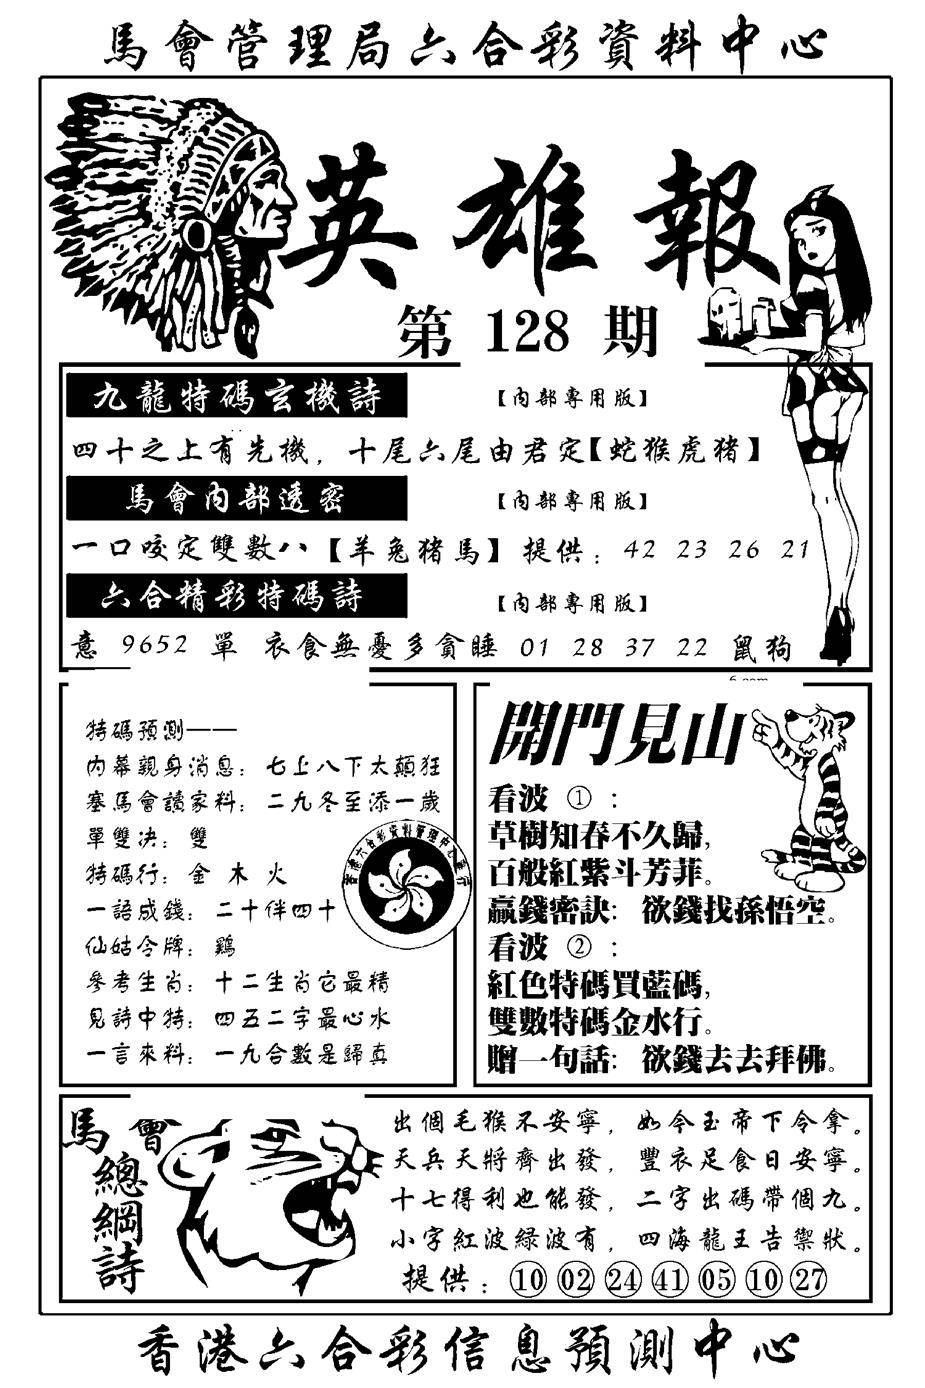 馬會管理局六合彩資料中心
英雄報
第 128 期
九龍特碼玄機詩 【內部專用版】
四十之上有先機，十尾六尾由君定【蛇猴虎豬】
馬會內部透密 【內部專用版】
一口咬定雙數八【羊兔猪馬】 提供：42 23 26 21
六合精彩特碼詩 【內部專用版】
意 9652 單 衣食無憂多貪睡 01 28 37 22 鼠狗
特碼預測——
內幕親身消息：七上八下太顛狂
塞馬會讀家料：二九冬至添一歲
單雙决：雙
特碼行：金 木 火
一語成錢：二十伴四十
仙姑令牌：鷄
參考生肖：十二生肖它最精
見詩中特：四五二字最心水
一言來料：一九合數是歸真
香港六合彩資料管理中心發行
開門見山
看波 ① ：
草樹知春不久歸，
百般紅紫斗芳菲。
贏錢密訣：欲錢找孫悟空。
看波 ② ：
紅色特碼買藍碼，
雙數特碼金水行。
贈一句話：欲錢去去拜佛。
馬會
總綱詩
出個毛猴不安寧，如今玉帝下令拿。
天兵天將齊出發，豐衣足食日安寧。
十七得利也能發，二字出碼帶個九。
小字紅波綠波有，四海龍王告禦狀。
提供：⑩ 02 24 41 05 ⑩ 27
香港六合彩信息預測中心